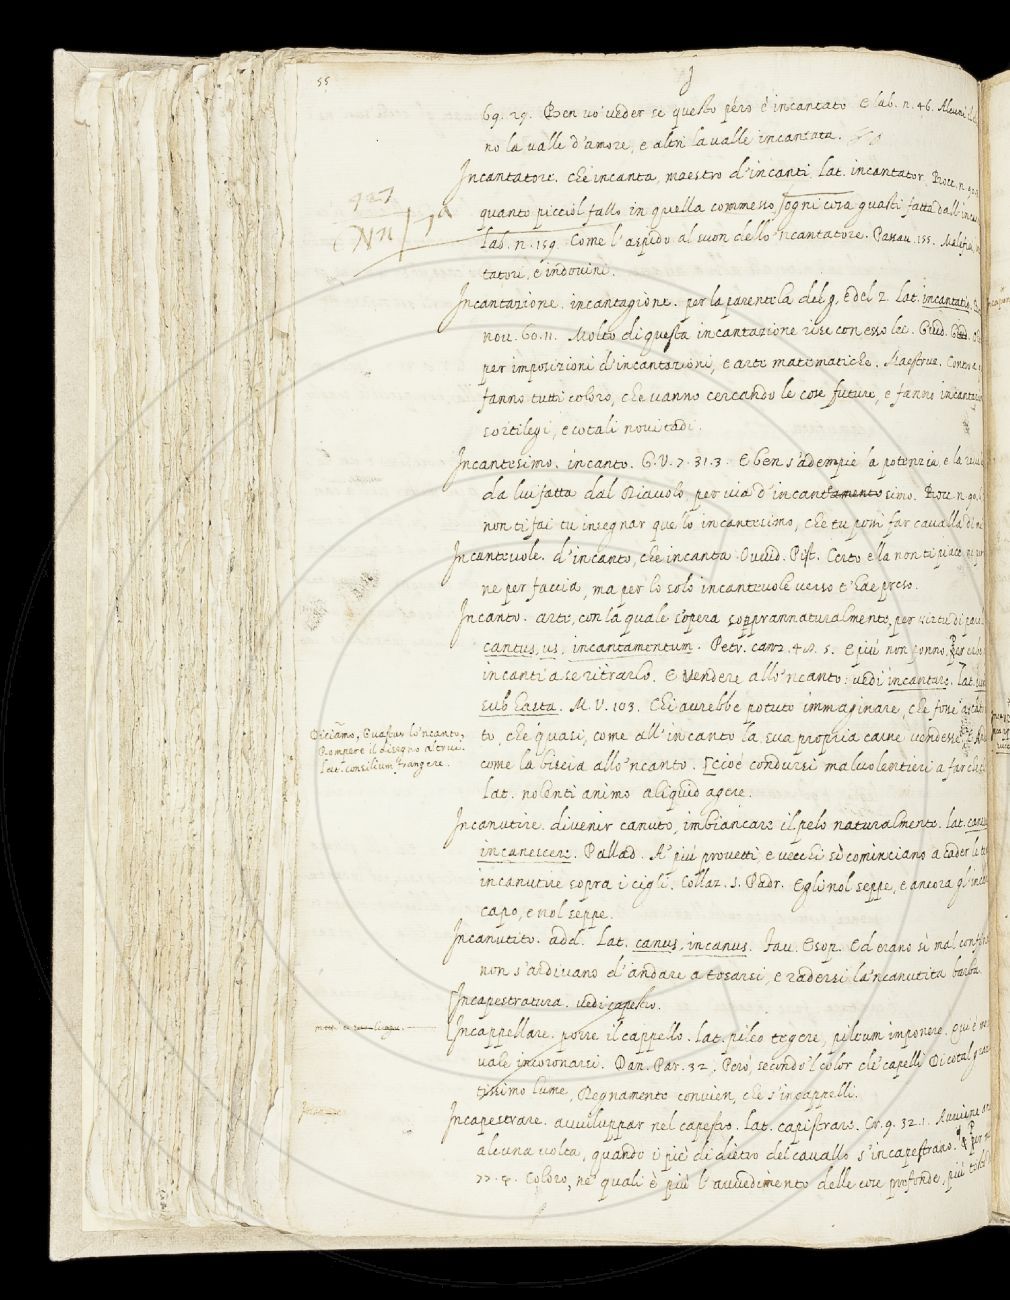 55
J
69. 29. Ben vo' veder se questo péro è incantato. E lab. n. 46. Alcuni
no la valle d'amore, e altri la valle incantata.
Incantatore. che incanta, maestro d'incanti, lat. incantator. Bocc. n.
quanto picciol fallo in quella commesso, ogni cosa guasti fatta dall'
927
lab. n. 159. Come l'aspido al suon dello 'ncantatore. Passav. 155.
tatori, e indovini.
Incantazione. incantagione. per la parentela del g, e del z. Lat. incantatio.
nov. 60. 11. Molto di questa incantazione rise con esso lei.
per imposizioni d'incantazioni, e arti matematiche. Maestruz.
fanno tutti coloro, che vanno cercando le cose future, e fanno
sortilegi, e cotali novitadi.
Incantesimo. incanto. G. V. 7. 31. 3. E ben s'adempiè la potenzia, e la
da lui fatta dal Diavolo, per via d'incantamento simo. Bocc. n. 90.
non ti fai tu insegnar quello incantesimo, che tu possi far cavalla di
Incantevole. d'incanto, che incanta. Ovvid. Pist. Certo ella non ti piace,
ne per faccia, ma per lo solo incantevole verso t'hae preso.
Incanto. arte, con la quale s'opera soprannaturalmente, per virtù di
cantus, us, incantamentum. Petr. canz. 48. 5. E più non ponno,
incanti a se ritrarlo. E Vendere allo 'ncanto: vedi incantare. lat.
sub hasta. M. V. 103. Chi avrebbe potuto immaginare, che fosse
Diciamo, Guastar lo 'ncanto,
Rompere il disegno altrui.
lat. consilium frangere.
to, che quasi, come all'incanto la sua propria carne vendesse
come la biscia allo 'ncanto. cioè condursi malvolentieri a far
lat. nolenti animo aliquid agere.
Incanutire. divenir canuto, imbiancare il pelo naturalmente. lat.
incanescere. Pallad. A' più provetti, e vecchi si cominciano a cader
incanutire sopra i cigli. Collaz. S. Padr. Egli nol seppe, e ancora
capo, e nol seppe.
Incanutito. add. Lat. canus, incanus. Fav. Esop. Ed erano sì mal
non s'ardivano d'andare a tosarsi, e radersi la 'ncanutita barba.
Incapestratura. vedi capestro.
Incappellare. porre il cappello. lat. pileo tegere, pileum imponere. Qui è
vale incoronarsi. Dan. Par. 32. Però, secondo 'l color de' capelli Di cotal
tissimo lume, Degnamente convien, che s'incappelli.
Incapestrare. avviluppar nel capestro. Lat. capistrare. Cr. 9. 32. 1. Avviene
alcuna volta, quando i piè di dietro del cavallo s'incapestrano.
77. 8. Coloro, ne' quali è più l'avvedimento delle cose profonde, più